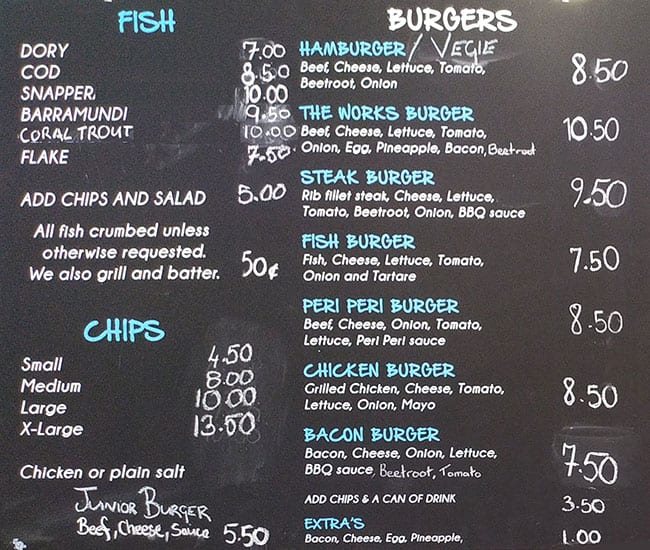 FISH
DORY 7.00
COD 8.50
SNAPPER 10.00
BARRAMUNDI 9.50
CORAL TROUT 10.00
FLAKE 7.50
ADD CHIPS AND SALAD 5.00
All fish crumbed unless
otherwise requested.
We also grill and batter. 50¢
CHIPS
Small 4.50
Medium 8.00
Large 10.00
X-Large 13.50
Chicken or plain salt
JUNIOR BURGER
Beef, Cheese, Sauce 5.50
BURGERS
HAMBURGER / VEGIE
Beef, Cheese, Lettuce, Tomato, 8.50
Beetroot, Onion
THE WORKS BURGER
Beef, Cheese, Lettuce, Tomato, 10.50
Onion, Egg, Pineapple, Bacon, Beetroot
STEAK BURGER
Rib fillet steak, Cheese, Lettuce, 9.50
Tomato, Beetroot, Onion, BBQ sauce
FISH BURGER
Fish, Cheese, Lettuce, Tomato, 7.50
Onion and Tartare
PERI PERI BURGER
Beef, Cheese, Onion, Tomato, 8.50
Lettuce, Peri Peri sauce
CHICKEN BURGER
Grilled Chicken, Cheese, Tomato, 8.50
Lettuce, Onion, Mayo
BACON BURGER
Bacon, Cheese, Onion, Lettuce, 7.50
BBQ sauce, Beetroot, Tomato
ADD CHIPS & A CAN OF DRINK 3.50
EXTRA'S
Bacon, Cheese, Egg, Pineapple, 1.00